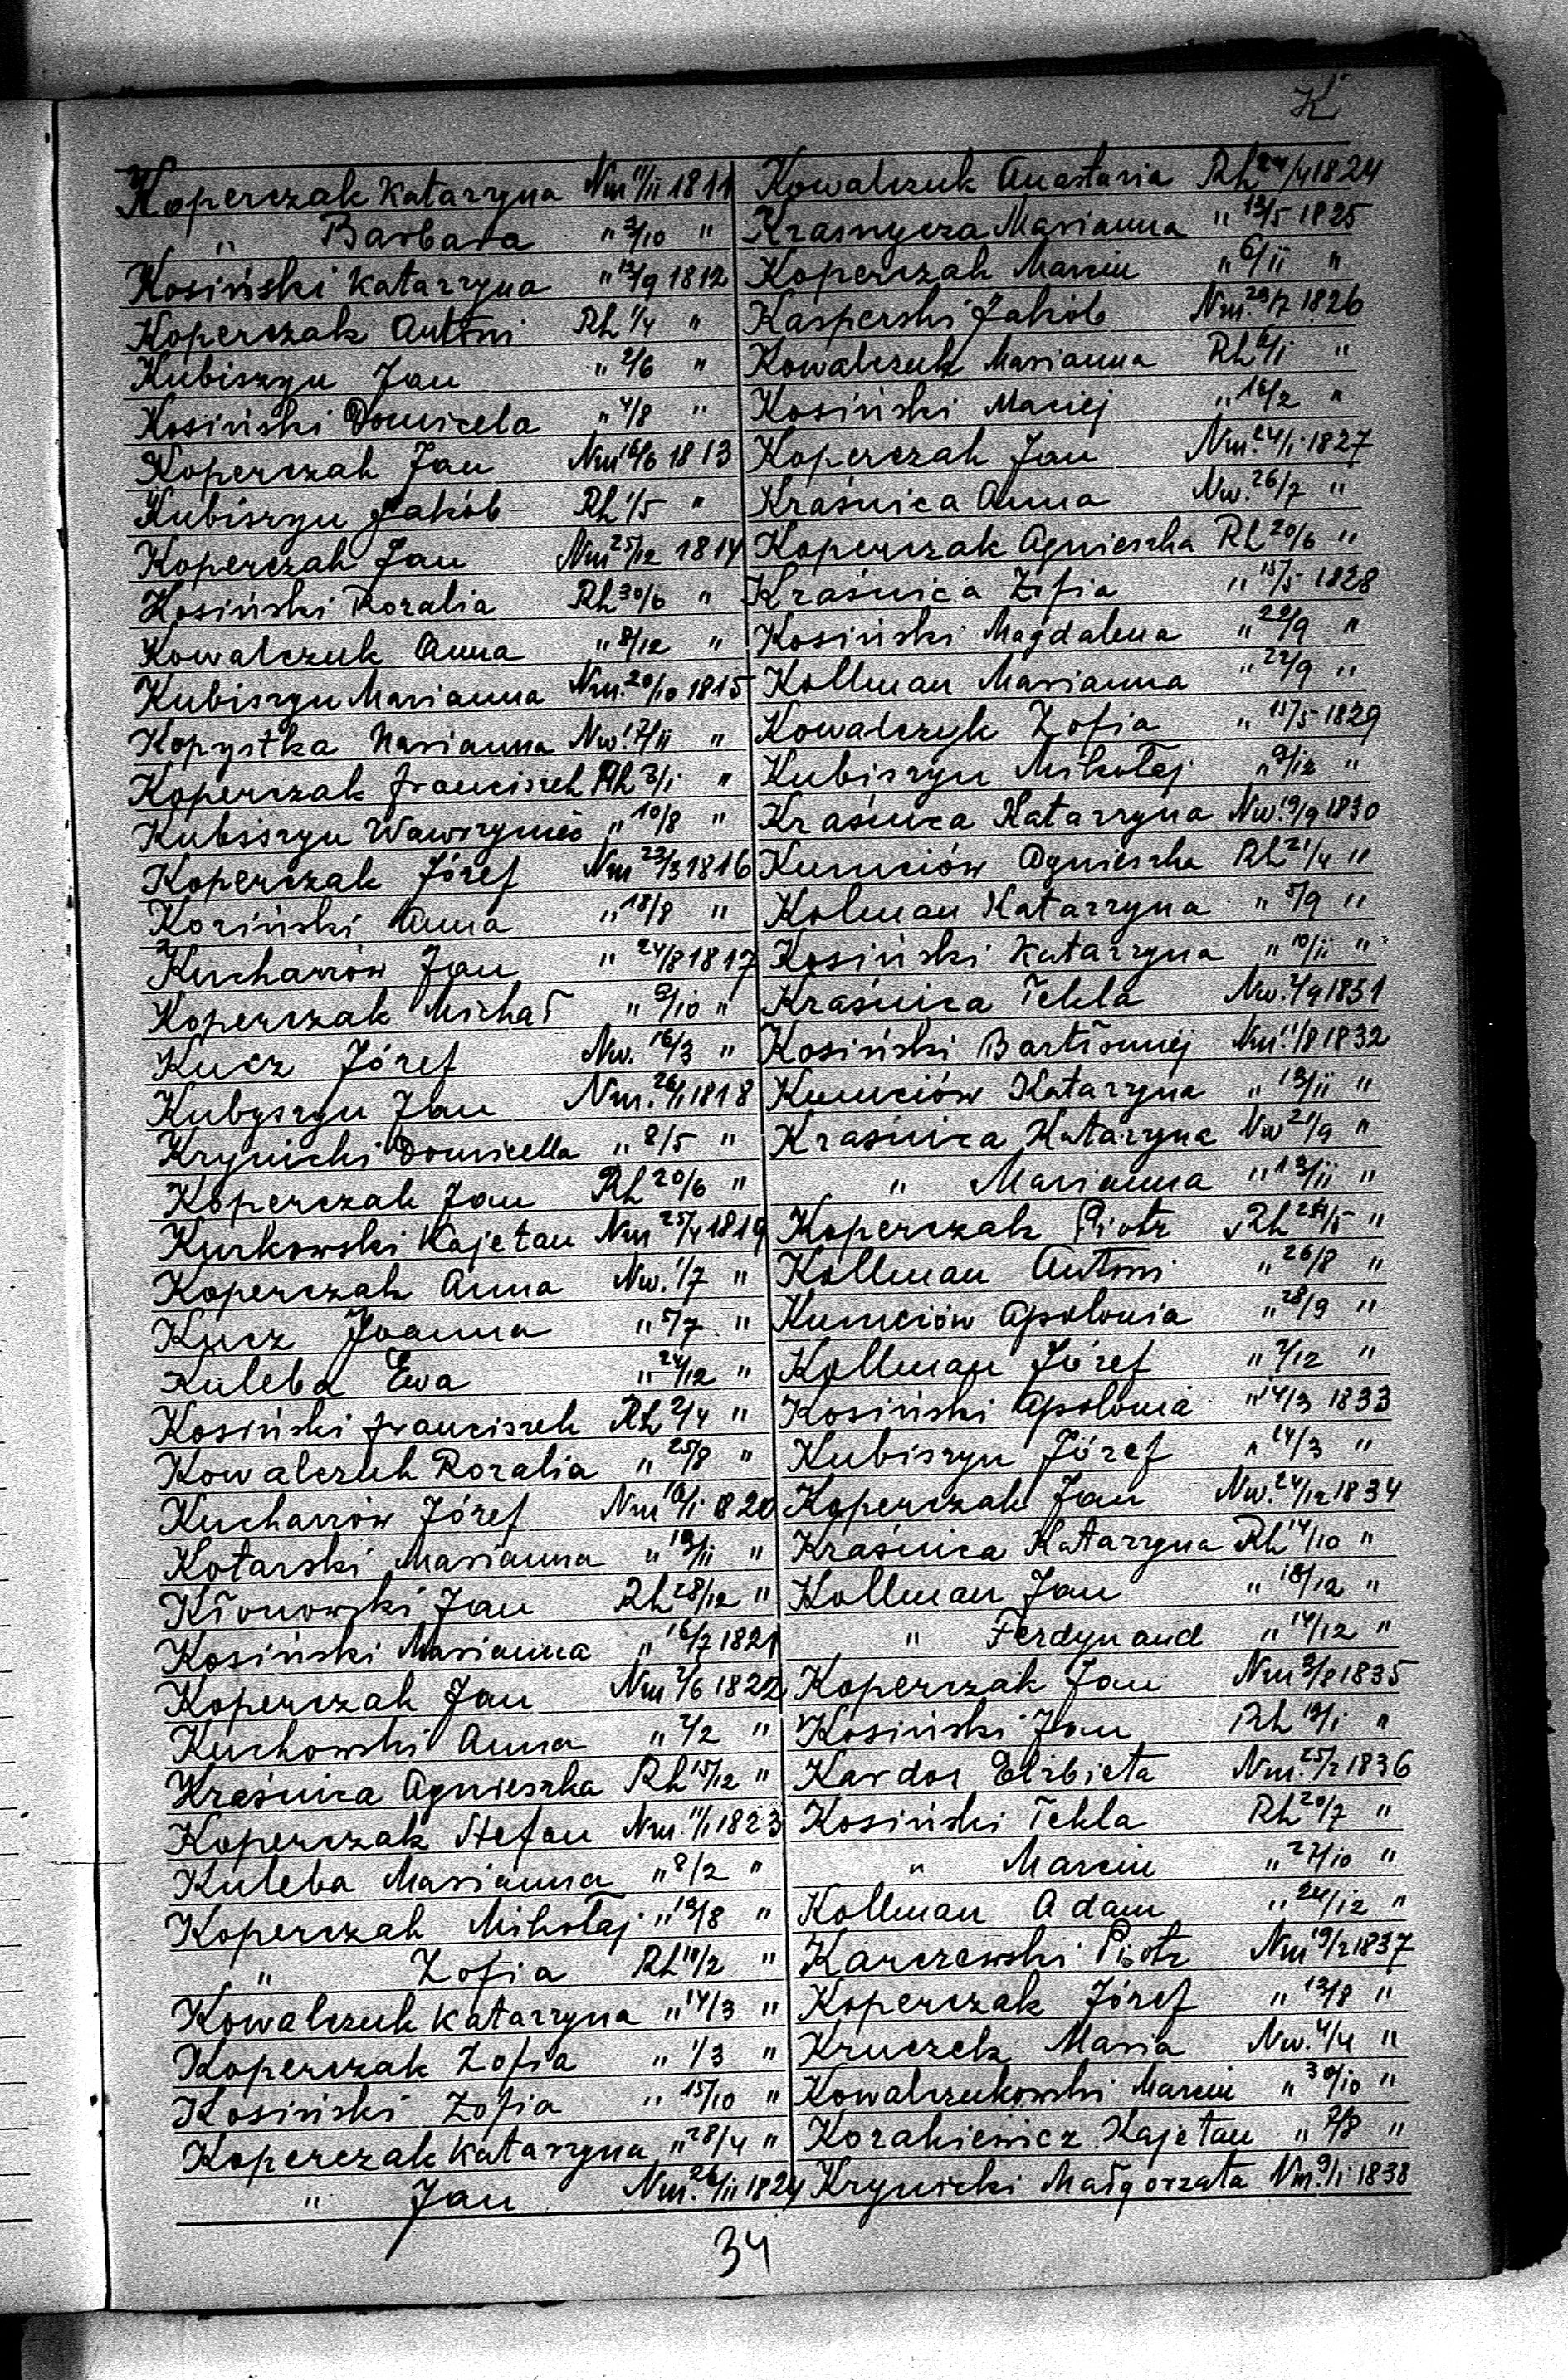 K
Koperczak Katarzyna Nm 11/II 1811
" Barbara " 2/10 "
Kosiński Katarzyna " 12/9 1812
Koperczak Antoni Rh 1/4 "
Kubiszyn Jan " 2/6 "
Kosiński Domicela " 4/8 "
Koperczak Jan Nm 16/6 1813
Kubiszyn Jakób Rh 1/5 "
Koperczak Jan Nm 25/12 1814
Kosiński Rozalia Rh 30/6 "
Kowalczuk Anna " 8/12 "
Kubiszyn Marianna Nm. 20/10 1815
Kopystka Marianna Nw. 17/II "
Koperczak Franciszek Rh 3/I "
Kubiszyn Wawrzyniec " 10/8 "
Koperczak Józef Nm 23/3 1816
Koziński Anna " 18/8 "
Kucharzów Jan " 24/8 1817
Koperczak Michał " 9/10 "
Kucz Józef Nw. 16/3 "
Kubyszyn Jan Nm. 26/I 1818
Krynicki Domicella " 8/5 "
Koperczak Jan Rh 20/6 "
Kurkowski Kajetan Nm 25/4 1819
Koperczak Anna Nw. 1/7 "
Kucz Joanna " 5/7 "
Kuleba Ewa " 24/12 "
Kosiński Franciszek Rh 2/4 "
Kowalczuk Rozalia " 25/8 "
Kucharzów Józef Nm 16/I 820
Kotarski Marianna " 19/II "
Kłonowski Jan Rh 28/12 "
Kosiński Marianna " 16/7 1821
Koperczak Jan Nm 2/6 1822
Kuchowski Anna " 2/2 "
Kraśnica Agnieszka Rh 15/12 "
Koperczak Stefan Nm. 11/I 1823
Kuleba Marianna " 8/2 "
Koperczak Mikołaj " 19/8 "
" Zofia Rh 10/2 "
Kowalczuk Katarzyna " 14/3 "
Koperczak Zofia " 1/3 "
Kosiński Zofia " 15/10 "
Koperczak Katarzyna " 28/4 "
" Jan Nm. 26/II 1824
Kowalczuk Anastazia Rh 24/4 1824
Krasnycza Marianna " 13/5 1825
Koperczak Marcin " 6/II "
Kasperski Jakób Nm. 29/7 1826
Kowalczuk Marianna Rh 6/I "
Kosiński Maciej " 16/2 "
Koperczak Jan Nm. 24/I 1827
Kraśnica Anna Nw. 26/7 "
Koperczak Agnieszka Rh 20/6 "
Kraśnica Zofia " 15/5 1828
Kosiński Magdalena " 22/9 "
Kollman Marianna " 22/9 "
Kowalczyk Zofia " 15/5 1829
Kubiszyn Mikołaj " 9/12 "
Kraśnica Katarzyna Nw. 19/9 1830
Kumciów Agnieszka Rh 21/4 "
Kolman Katarzyna " 5/9 "
Kosiński Katarzyna " 10/II "
Kraśnica Tekla Nw. 4/9 1831
Kosiński Bartłomiej Nm. 11/8 1832
Kumciów Katarzyna " 13/II "
Kraśnica Katarzyna Nw 21/9 "
" Marianna " 13/II "
Koperczak Piotr Rh 24/5 "
Kollman Antoni " 26/8 "
Kumciów Apolonia " 28/9 "
Kollman Józef " 2/12 "
Kosiński Apolonia " 14/3 1833
Kubiszyn Józef " 14/3 "
Koperczak Jan Nw. 24/12 1834
Kraśnica Katarzyna Rh 14/10 "
Kollman Jan " 18/12 "
" Ferdynand " 14/12 "
Koperczak Jan Nm 3/8 1835
Kosiński Jan Rh 19/I "
Kardos Elżbieta Nm. 25/2 1836
Kosiński Tekla Rh 20/7 "
" Marcin " 27/10 "
Kollman Adam " 24/12 "
Karczewski Piotr Nm 19/2 1837
Koperczak Józef " 13/8 "
Kruczek Maria Nw. 4/4 "
Kowalczukowski Marcin " 30/10 "
Kozakiewicz Kajetan " 7/8 "
Krynicki Małgorzata Nm. 9/I 1838
34